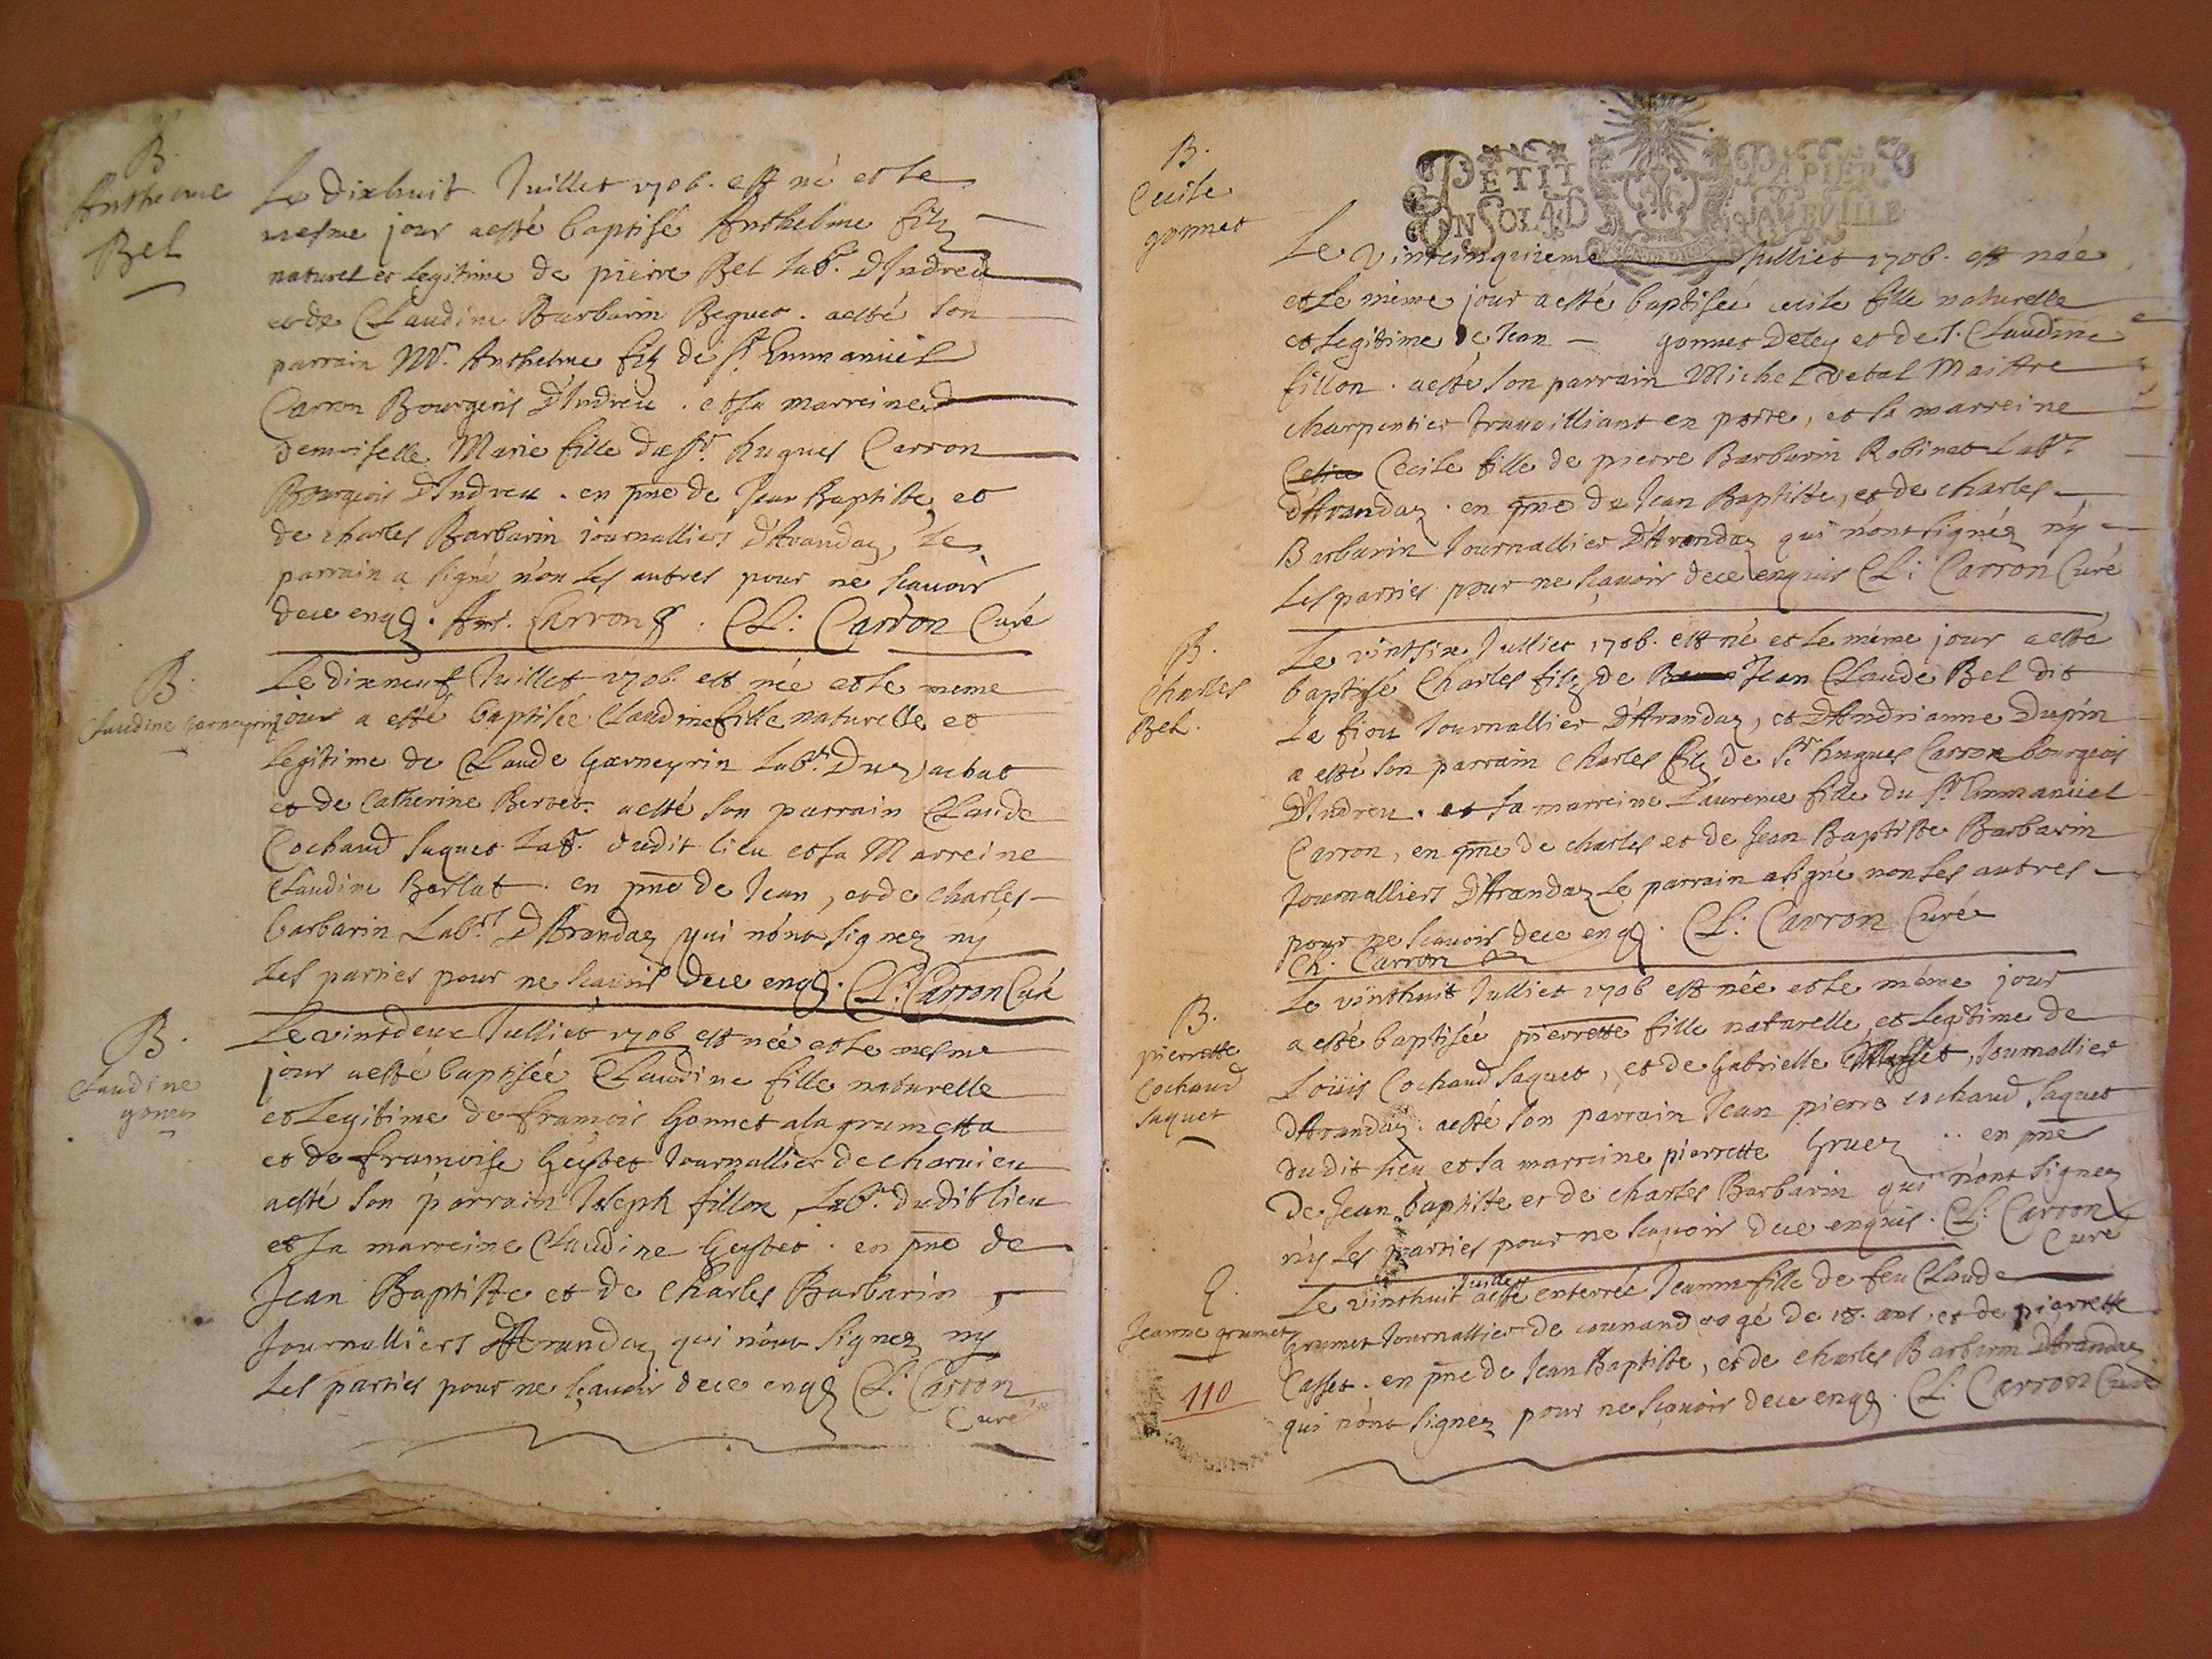 B.
Anthelme
Bel
Le dixhuit Juillet 1706. est né et le
mesme jour aesté baptisé Anthelme filz
naturel et legitime de pierre Bel labr. d'Indreu
et de Claudine Barbarin Beguet. aesté son
parrain Mr. Anthelme filz de sr. Emmanüel
Carron Bourgeois d'Indreu. et sa marreine
demoiselle Marie fille du sr. hugues Carron
Bourgeois d'Indreu. en pñe de Jean Baptiste, et
de charles Barbarin journalliers d'Arandaz, Le
parrain a signé non les autres pour ne scavoir
dece enqs. Ant. Carron. CL: Carron Curé
B.
Claudine Garneyrin
Le dixneuf Juillet 1706. est née et le meme
jour a esté baptisée Claudine fille naturelle et
legitime de Claude Garneyrin labr. Du vachat
et de Catherine Bervet. aesté son parrain Claude
Cochaud Saquet Labr. dudit lieu et sa Marreine
Claudine Berlat. en pñe de Jean, et de charles
barbarin Labrs. d'Arandaz qui n'ont signez ny
les parties pour ne scavoir dece enqs. CL: Carron Curé
B.
Claudine
gonet
Le vintdeux Julliet 1706 est née et le mesme
jour aesté baptisée Claudine fille naturelle
et legitime de françois Gonnet ala grumetta
et de françoise Geystet Journallier de charvieu
aesté son parrain Joseph fillon Labr. dudit lieu
et sa marreine Claudine Geystet. en pñe de
Jean Baptiste et de Charles Barbarin
Journalliers d'Arandaz qui n'ont signez ny
les parties pour ne sçavoir dece enqs CL: Carron
Curé
PETIT PAPIER
UN SOL LA FEUILLE
B.
Cecile
gonnet
Le vintcinquieme Julliet 1706. est née
et le même jour aesté baptiseé cecile fille naturelle
et legitime de Jean gonnet Deley et de J. Claudine
fillon. aesté son parrain Michel vetal Maistre
charpentier travailliant en poste, et sa marreine
Cecile fille de pierre Barbarin Robinet Labr.
d'Arandaz. en pñe de Jean Baptiste, et de charles
Barbarin Journallier d'Arandaz qui n'ont signéz ny
les parties pour ne sçavoir dece enquis CL: Carron Curé
B.
Charles
Bel.
Le vintsix Julliet 1706. est né et le même jour aesté
baptisé Charles filz de Jean Claude Bel dit
Le fiou Journallier d'Arandaz, et d'Andrianne Dupin
a esté son parrain charles filz de Sr. hugues Carron bourgeois
d'Indreu. et sa marreine Laurence fille du sr. Emmanüel
Carron, en pñe de charles et de Jean Baptiste Barbarin
Journalliers d'Arandaz Le parrain asigné non les autres
pour ne scavoir dece enqs. CL: Carron Curé
Ch. Carron
B.
pierrette
Cochaud
saquet
Le vinthuit Julliet 1706 est née et le même jour
a esté baptisée pierrette fille naturelle et legitime de
Loüis Cochaud Saquet, et de Gabrielle Masset, Journallier
d'Arandaz. aesté son parrain Jean pierre cochaud Saquet
dudit lieu et sa marreine pierrette Gruez .. en pñe
De Jean baptiste et de charles Barbarin qui n'ont signez
n'y les parties pour ne scavoir dece enquis. CL: Carron
Curé
E.
Jeanne grumet
Le vinthuit Juillet aesté enterrée Jeanne fille de feu Claude
Grumet Journallier de counand agé de 18. ans. et de pierrette
Casset. en pñe de Jean Baptiste, et de charles Barbarin d'Arandaz
qui n'ont signez pour ne scavoir dece enqs. CL: Carron Curé
110